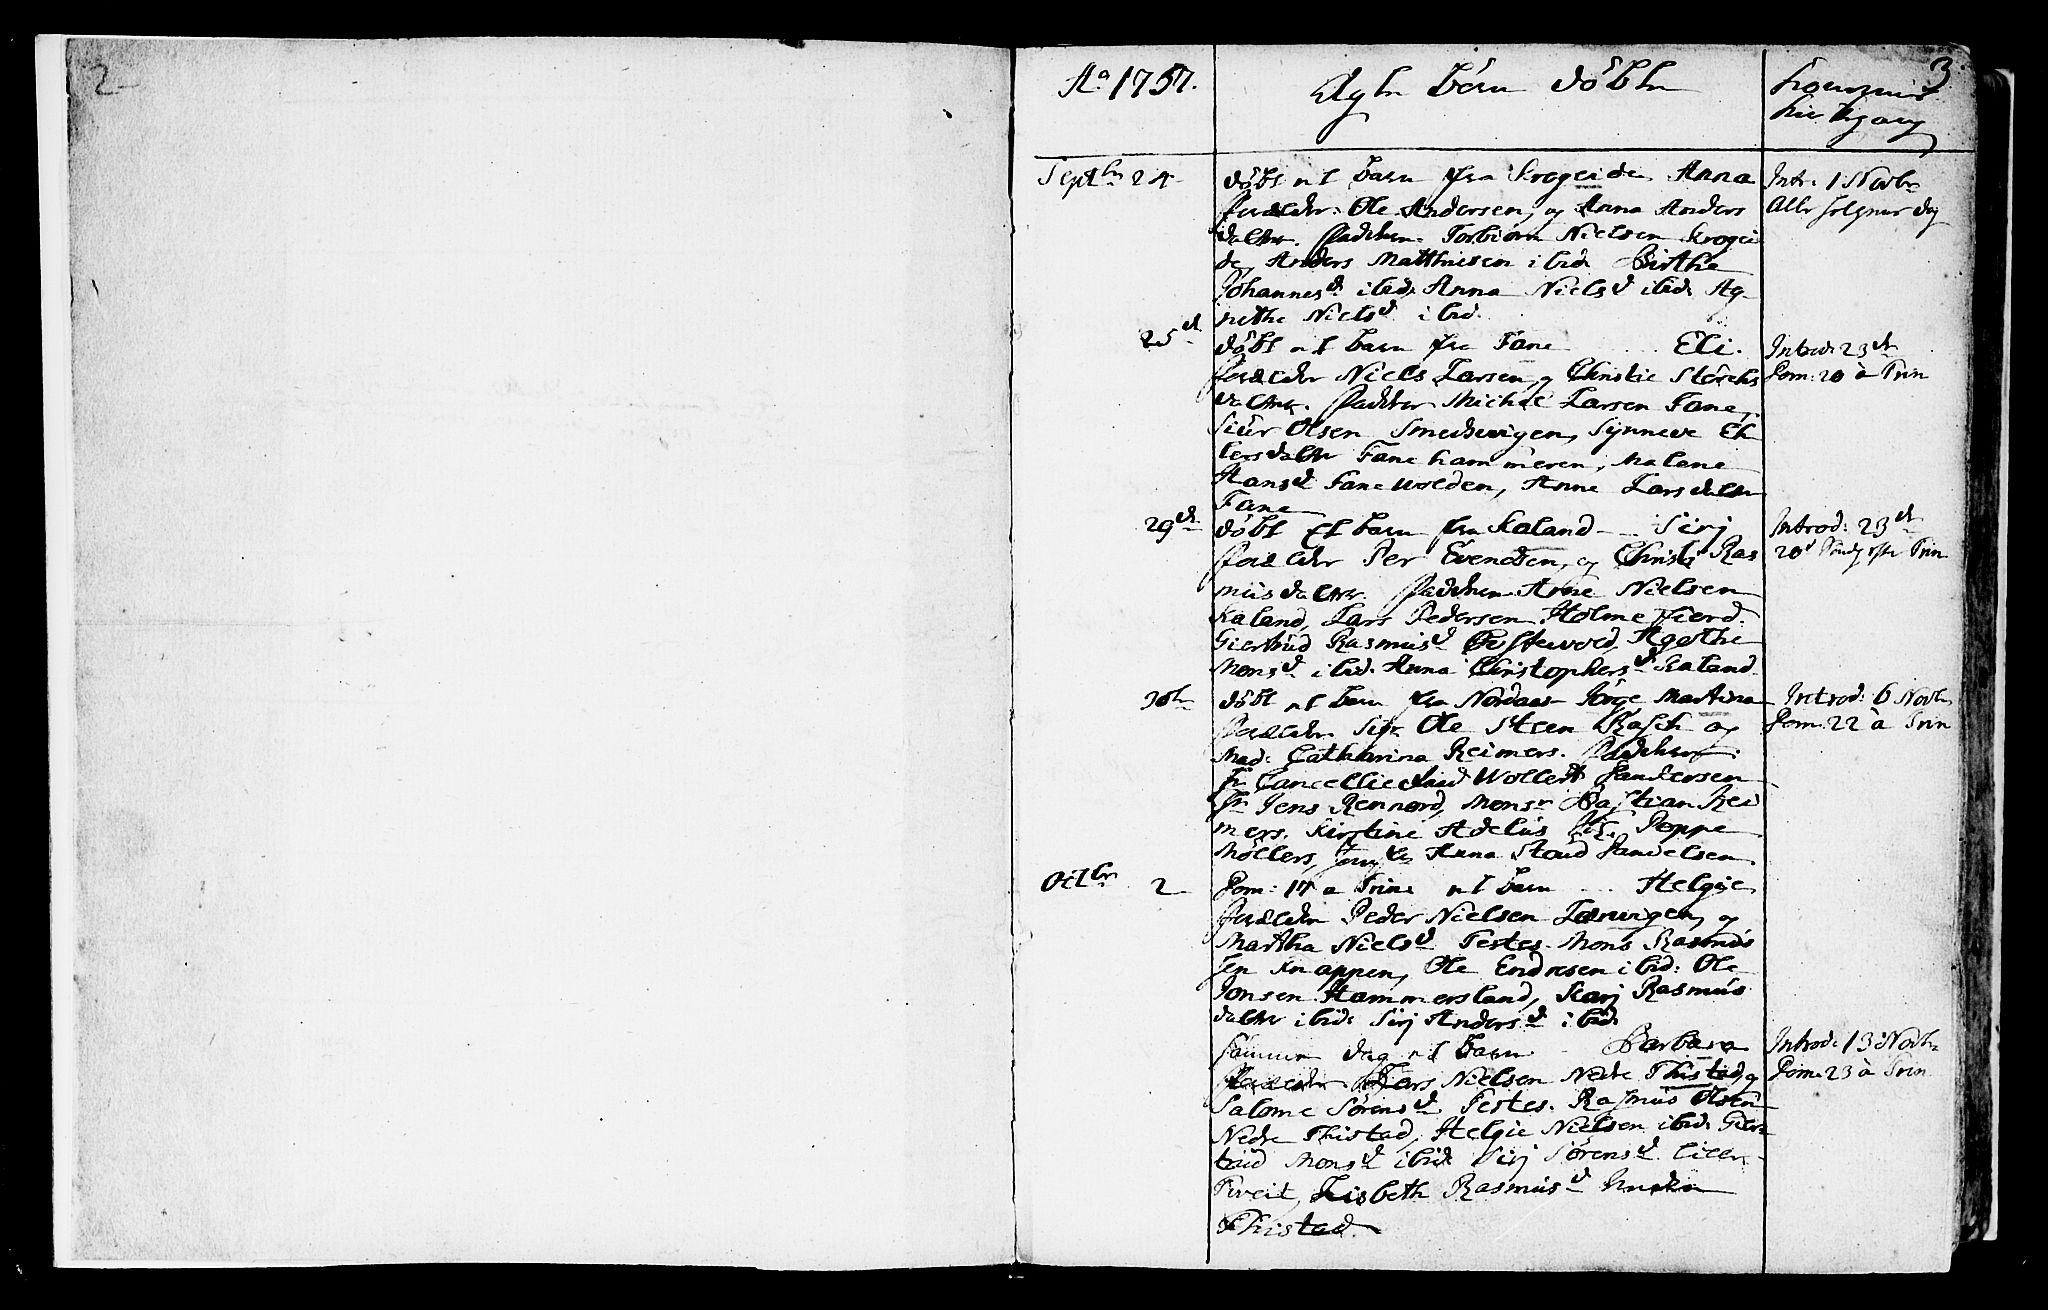 2
3.
Ao 1757.
Ægte børn døbte
Septbr 24
døbt et barn fra Krogeide Anna
Forælder: Ole Andersen, og Anna Anders
datter. Faddere. Torbiørn Nielsen Krogei
de, Anders Matthiesen ibid. Birthe
Johannesd. ibid. Anna Nielsd ibid. Ag-
nethe Nielsd ibid.
Intr. 1 Novbr
Alle helgener dag
25de
døbt et barn fra Fane ... Eli.
Forælder Niels Larsen, og Christie Størchs
datter. Faddere Michel Larsen Fane,
Siur Olsen Smedsvigen, Synneve Eh
lersdatter Fanehammeren, Malene
Hansd Fanevolden, Anne Larsdatter
Fane
Introd: 23de
Dom: 20 à Trin
29de
døbt Et barn fra Kaland - Sirj
Forælder Per Evendsen, og Christi Ras
musdatter. Faddere Arne Nielsen
Kaland, Lars Pedersen Holmefiord.
Giertrud Rasmusd Agathe
Monsd ibid. Anna Christophersd Kaland
Introd: 23de
20d Søndg efter Trin
30te
døbt et barn fra Nordaas Martina
Forælder Sigr. Ole Steen Rasch og
Mad: Catharina Reimers. Faddere.
Hr Cancellieraad Wollert Danckersen
Hr Jens Rennord, Monsr Bastian Rei
mers. Kirstine Poppe
Møllers, Anna Danckelsen.
Introd: 6 Novbr
Dom: 22 à Trin
Octbr 2
Dom: 17 a Trini et barn ... Helgie
Forælder Peder Nielsen og
Martha Nielsd Testes. Mons Rasmus
sen Knappen, Ole Endresen ibid: Ole
Jonsen Hammersland, Karj Rasmus
datter ibid. Sirj Andersd ibid.
Samme dag et barn - Barbara
Forælder Lars Nielsen Nedre Thistad, og
Salome Sørensd. Testes. Rasmus Olsen
Nedre Thistad, Helgie Nielsen ibid. Gier
trud Monsd ibid. Sirj Sørensd Lille
Tveit, Lisbeth Rasmusd
Thistad.
Introd: 13 Novbr
Dom: 23 à Trin